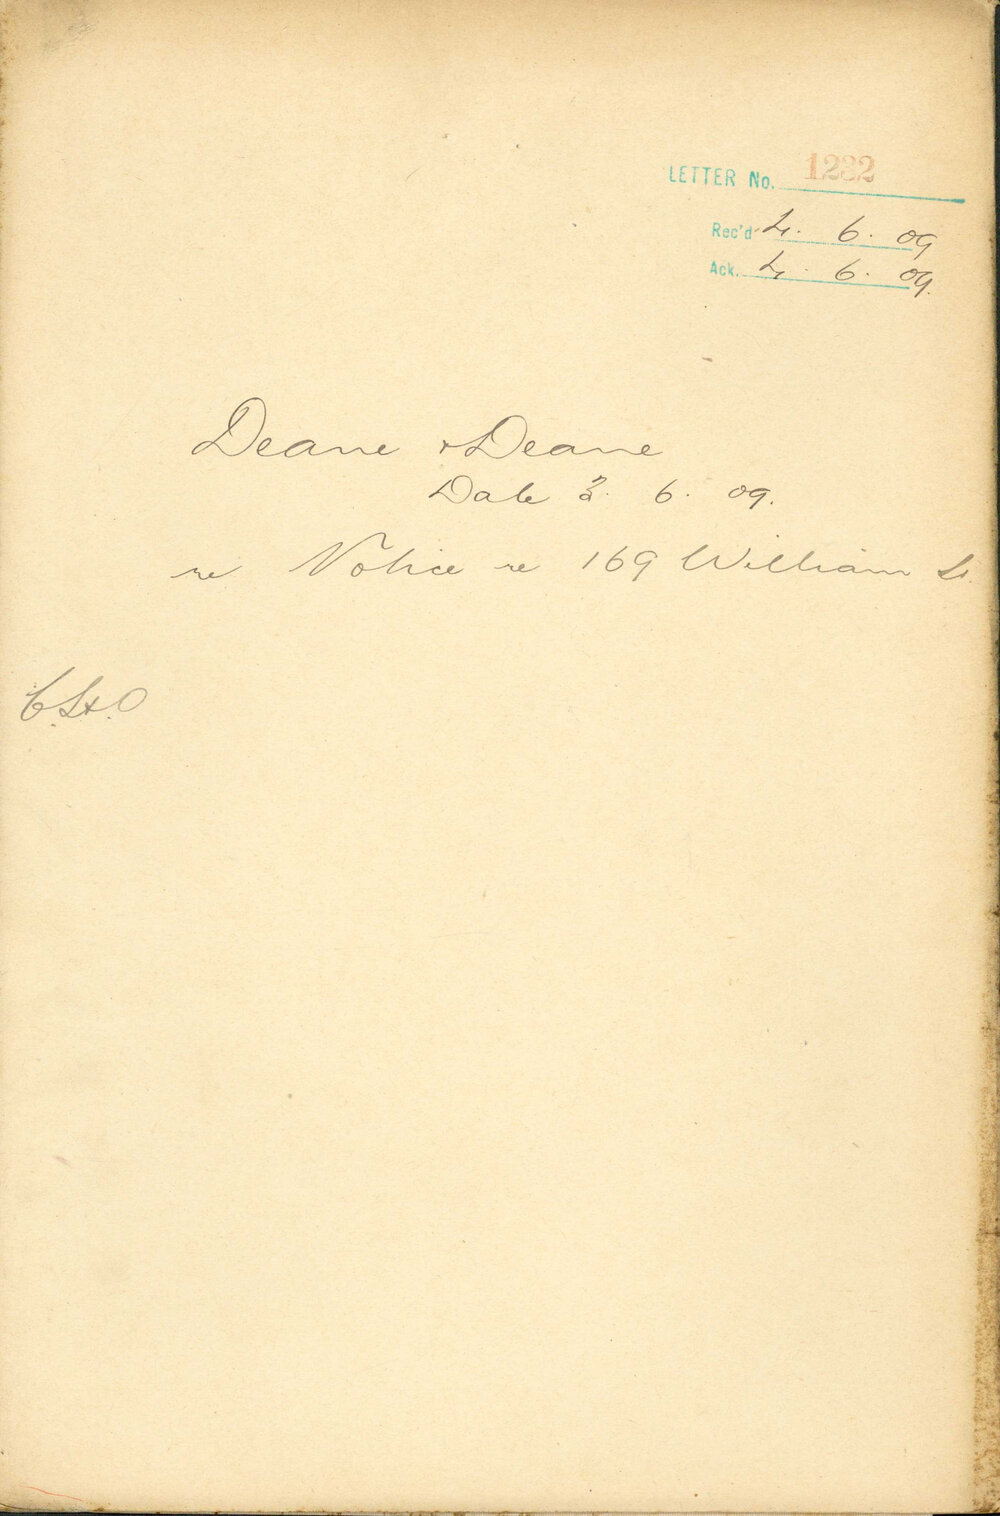 LETTER No. 1232
Rec'd 4. 6. 09
Ack. 4. 6. 09.
Deane & Deane
Date 3. 6. 09.
re Notice re 169 William St.
C.St.O